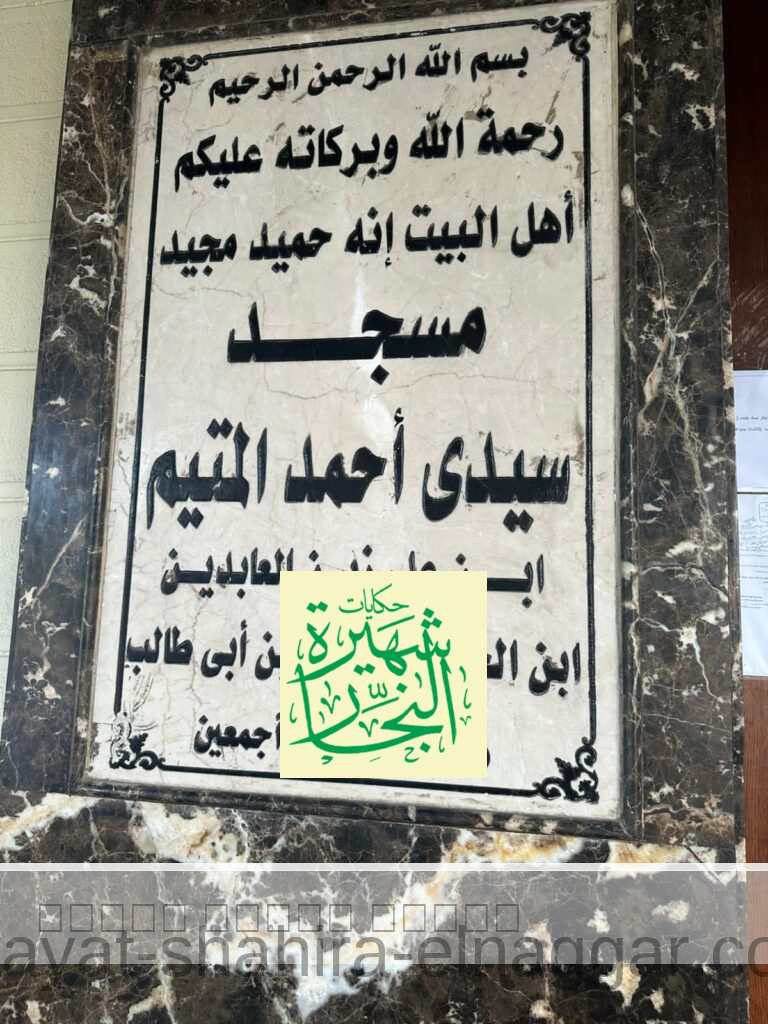 بسم الله الرحمن الرحيم
رحمة الله وبركاته عليكم
أهل البيت إنه حميد مجيد
مسجد
سيدى أحمد المتيم
ابن على زين العابدين
ابن أبى طالب
أجمعين
حكايات
شهيرة
النجار
ayat-shahira-elnaggar.co